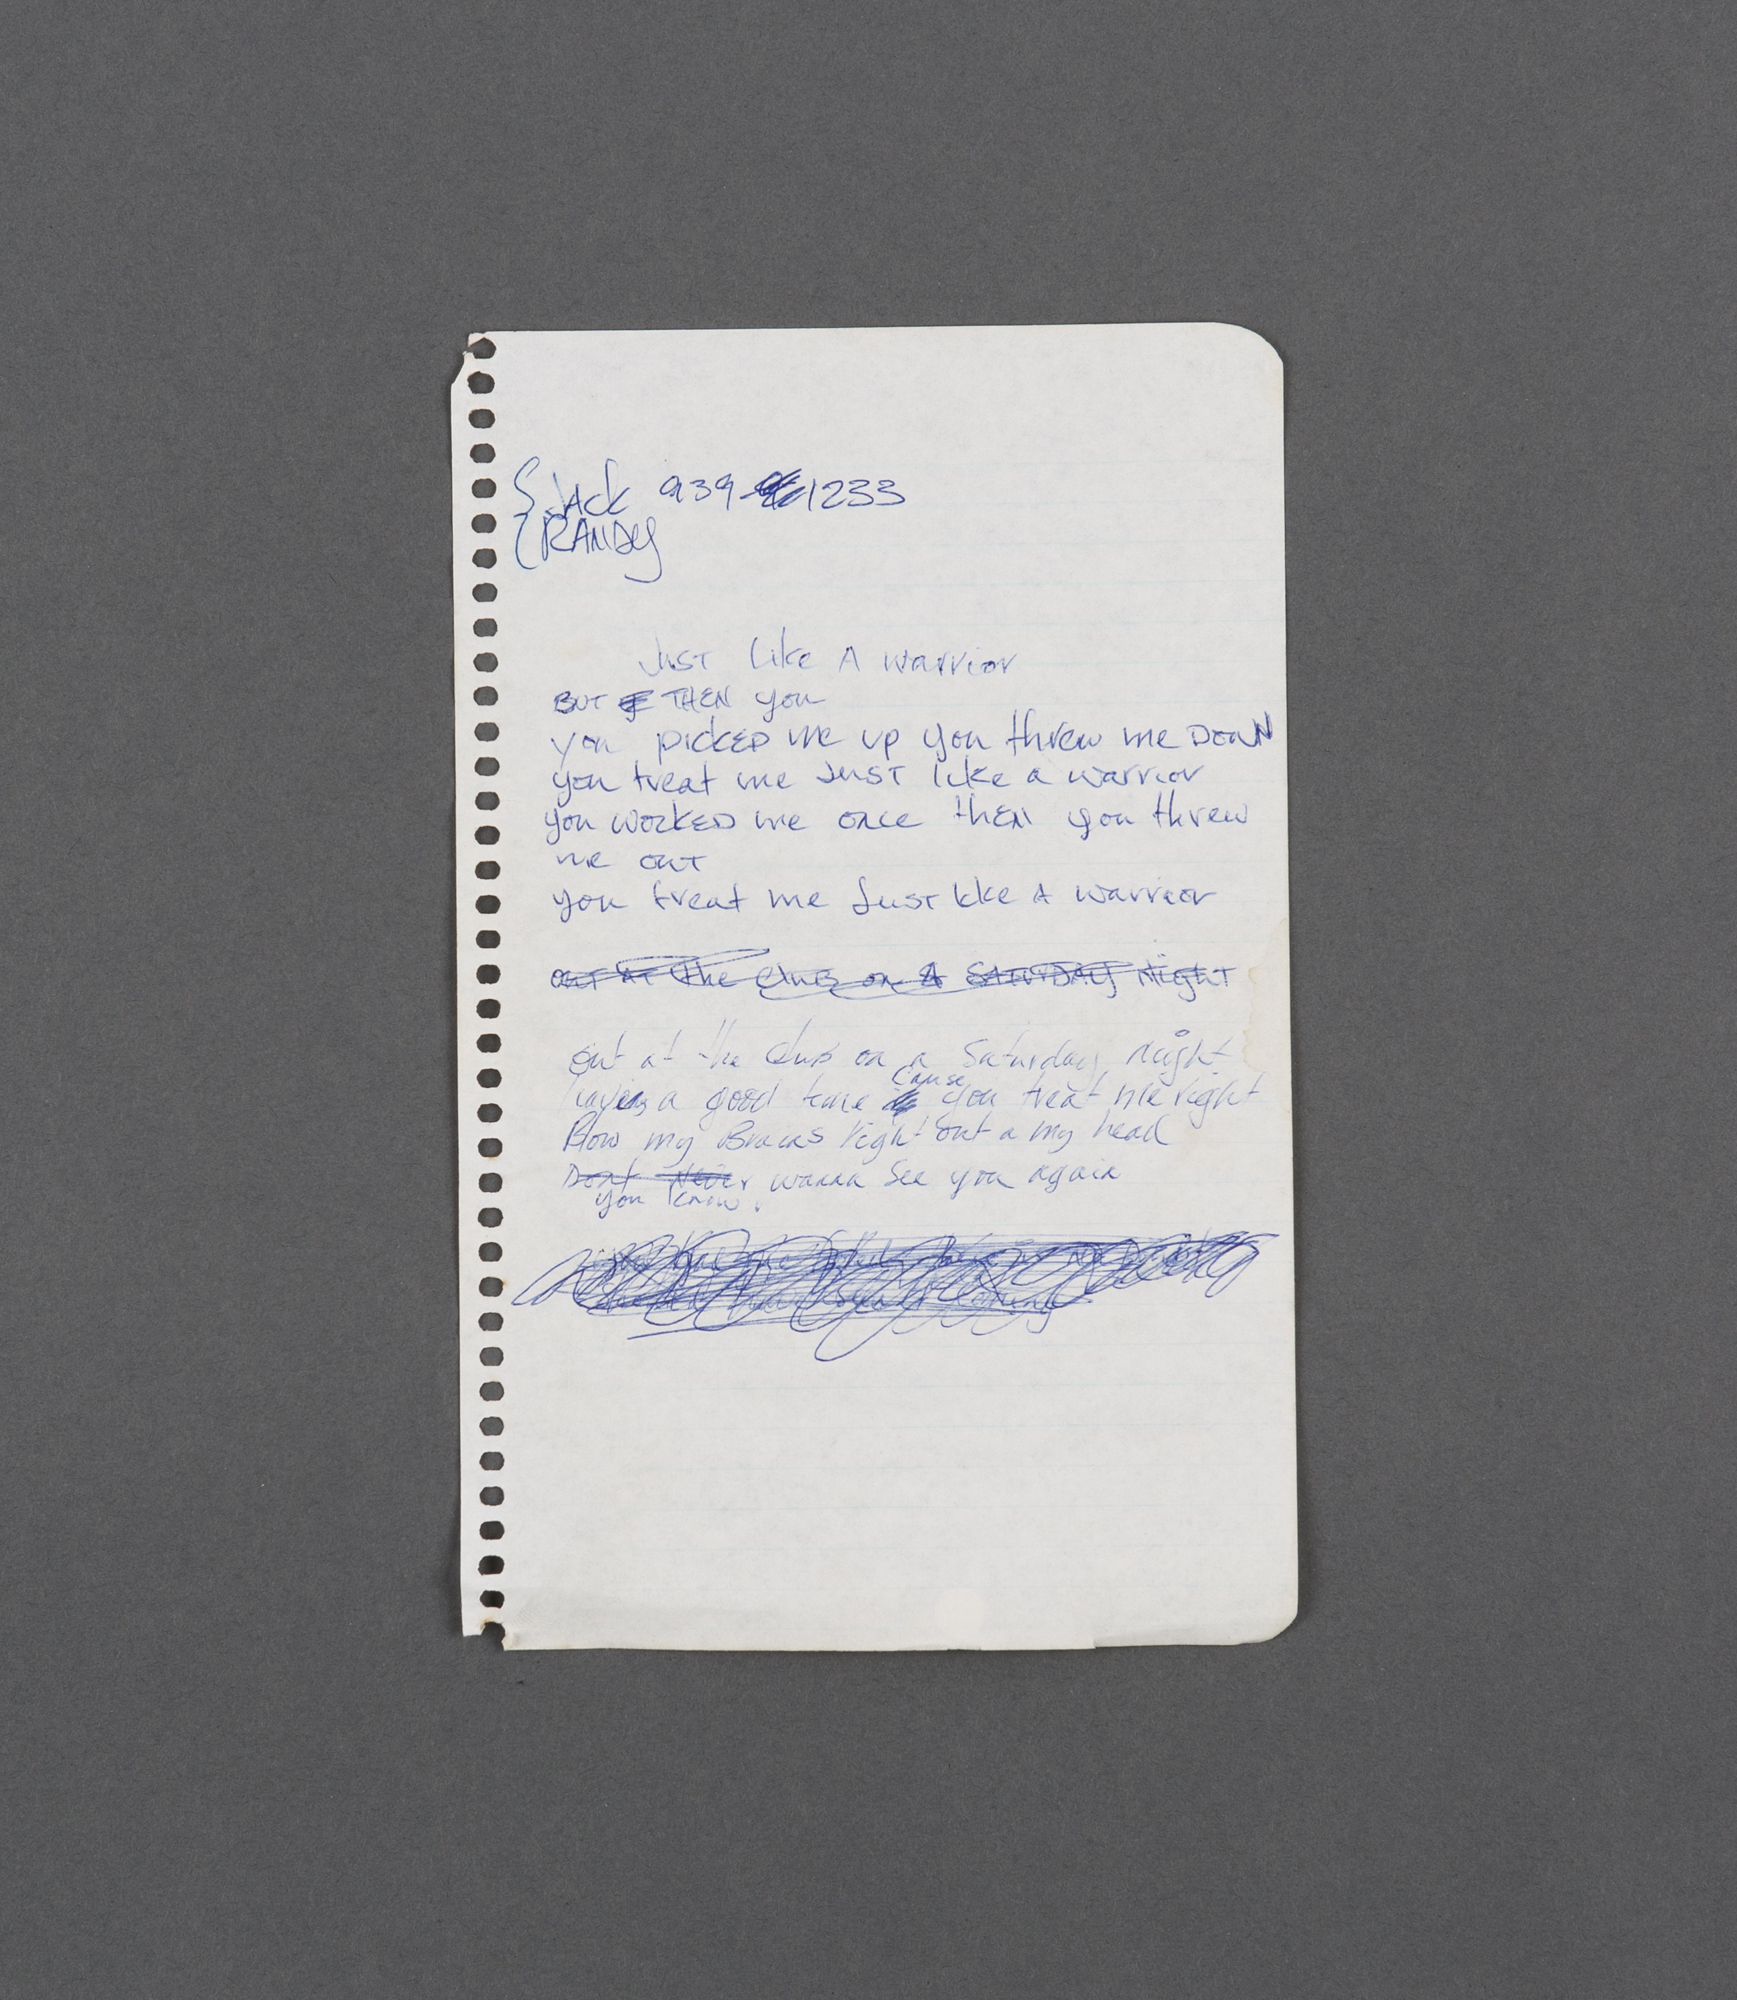 Jack 939-1233
RANDY
Just Like A Warrior
BUT THEN you
you PICKED me up you threw me DOWN
you treat me JUST like a warrior
you WORKED me once thEN you threw
me out
you treat me Just like A warrior
out AT the CluB on A SATURDAY Night
Out at the Club on a Saturday Night
having a good time cause you treat me right
Blow my Brains right out a my head
Dont Never wanna See you again
you know.